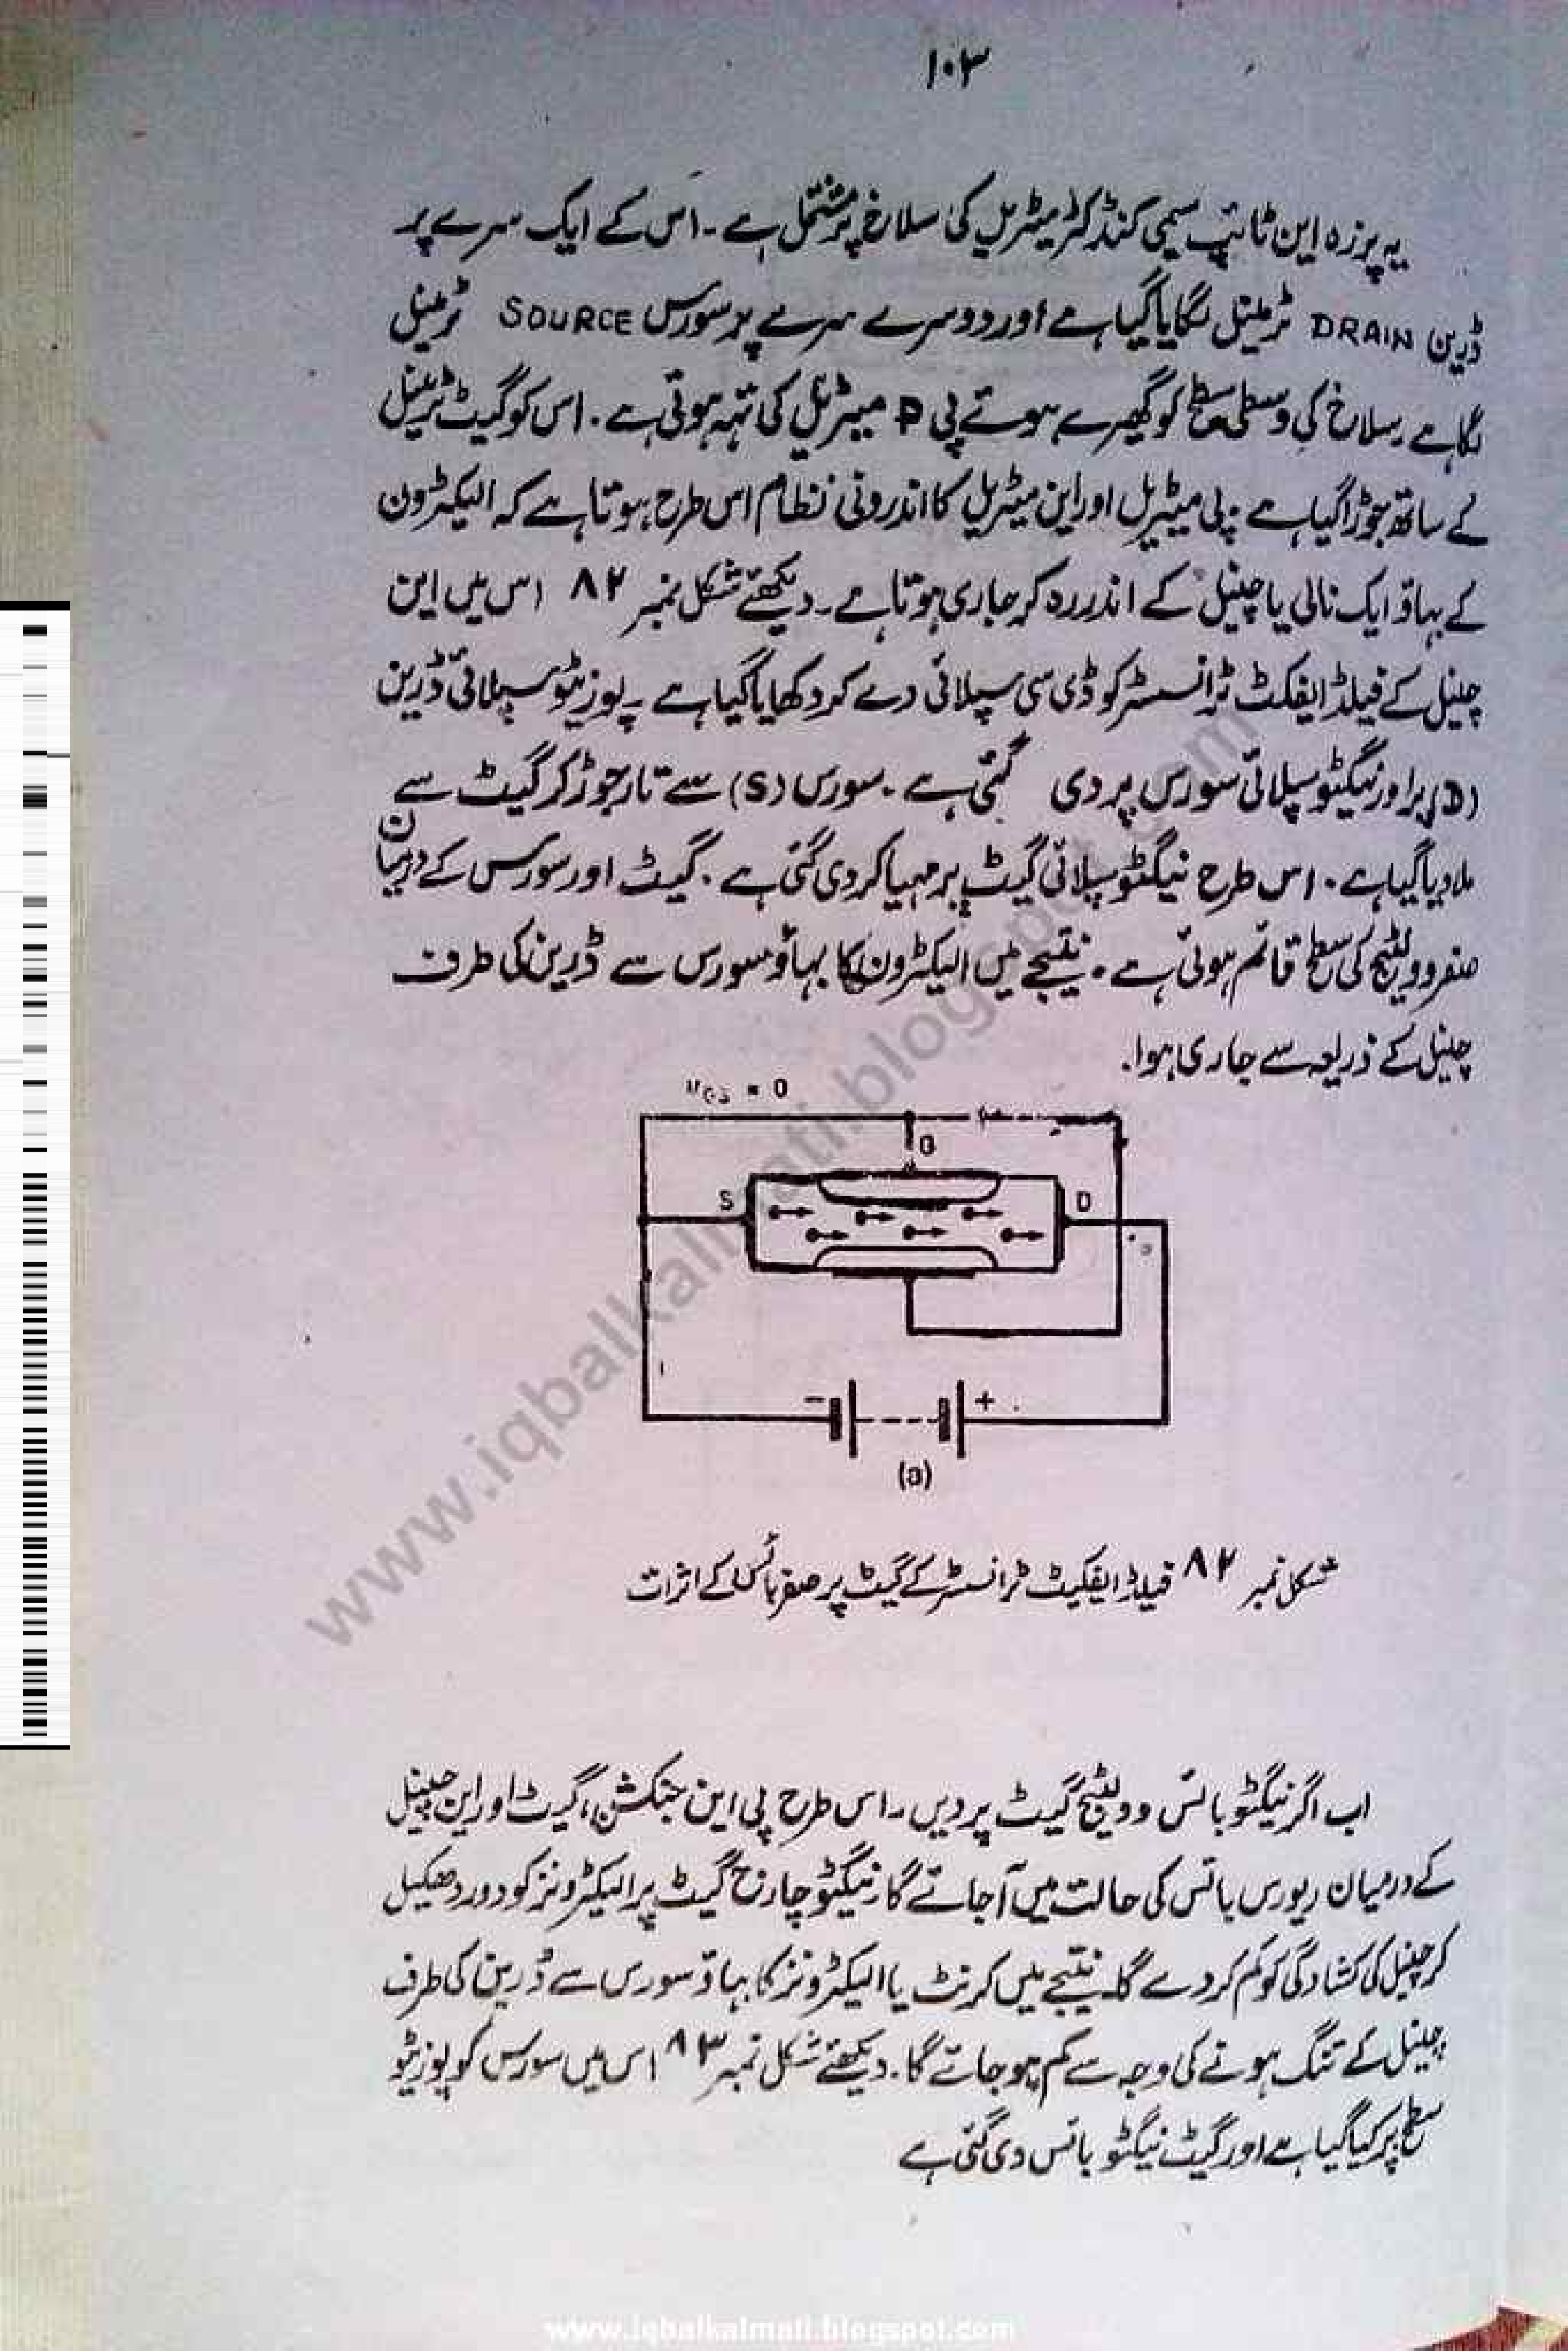 ۱۰۳
یہ پرزہ این ٹائپ سیمی کنڈکٹر میٹریل کی سلاخ پر مشتمل ہے ۔ اس کے ایک سرے پر
ڈرین DRAIN ٹرمینل لگایا گیا ہے اور دوسرے سرے پر سورس SOURCE ٹرمینل
لگا ہے سلاخ کی وسطی سطح کو گھیرے ہوئے پی P میٹریل کی تہہ ہوتی ہے ۔ اس کو گیٹ ٹرمینل
کے ساتھ جوڑا گیا ہے ۔ پی میٹیریل اور این میٹریل کا اندرونی نظام اس طرح ہوتا ہے کہ الیکٹرون
کے بہاؤ ایک نالی یا چینل کے اندر رہ کر جاری ہوتا ہے ۔ دیکھئے شکل نمبر ۸۲ اس میں این
چینل کے فیلڈ ایفکٹ ٹرانسسٹر کو ڈی سی سپلائی دے کر دکھایا گیا ہے ۔ پوزیٹو سپلائی ڈرین
(D) پر اور نیگٹو سپلائی سورس پر دی گئی ہے ۔ سورس (S) سے تار جوڑ کر گیٹ سے
ملا دیا گیا ہے ۔ اس طرح نیگٹو سپلائی گیٹ پر مہیا کر دی گئی ہے ۔ گیٹ اور سورس کے درمیان
صفر وولٹیج کی سطح قائم ہوئی ہے ۔ نتیجے میں الیکٹرون کا بہاؤ سورس سے ڈرین کی طرف
چینل کے ذریعہ سے جاری ہوا ۔
VGS = 0
G
S D
- +
(a)
شکل نمبر ۸۲ فیلڈ ایفکیٹ ٹرانسسٹر کے گیٹ پر صفر بائس کے اثرات
اب اگر نیگٹو بائس وولٹیج گیٹ پر دیں ۔ اس طرح پی این جنکشن، گیٹ اور این چینل
کے درمیان ریورس بائس کی حالت میں آ جائے گا ۔ نیگٹو چارج گیٹ پر الیکٹرونز کو دور دھکیل
کر چینل کی کشادگی کو کم کر دے گا ۔ نتیجے میں کرنٹ یا الیکٹرونز کا بہاؤ سورس سے ڈرین کی طرف
چینل کے تنگ ہونے کی وجہ سے کم ہو جائے گا ۔ دیکھئے شکل نمبر ۸۳ اس میں سورس کو پوزیٹو
سطح پر کیا گیا ہے اور گیٹ نیگٹو بائس دی گئی ہے
www.iqbalkalmati.blogspot.com
www.iqbalkalmati.blogspot.com